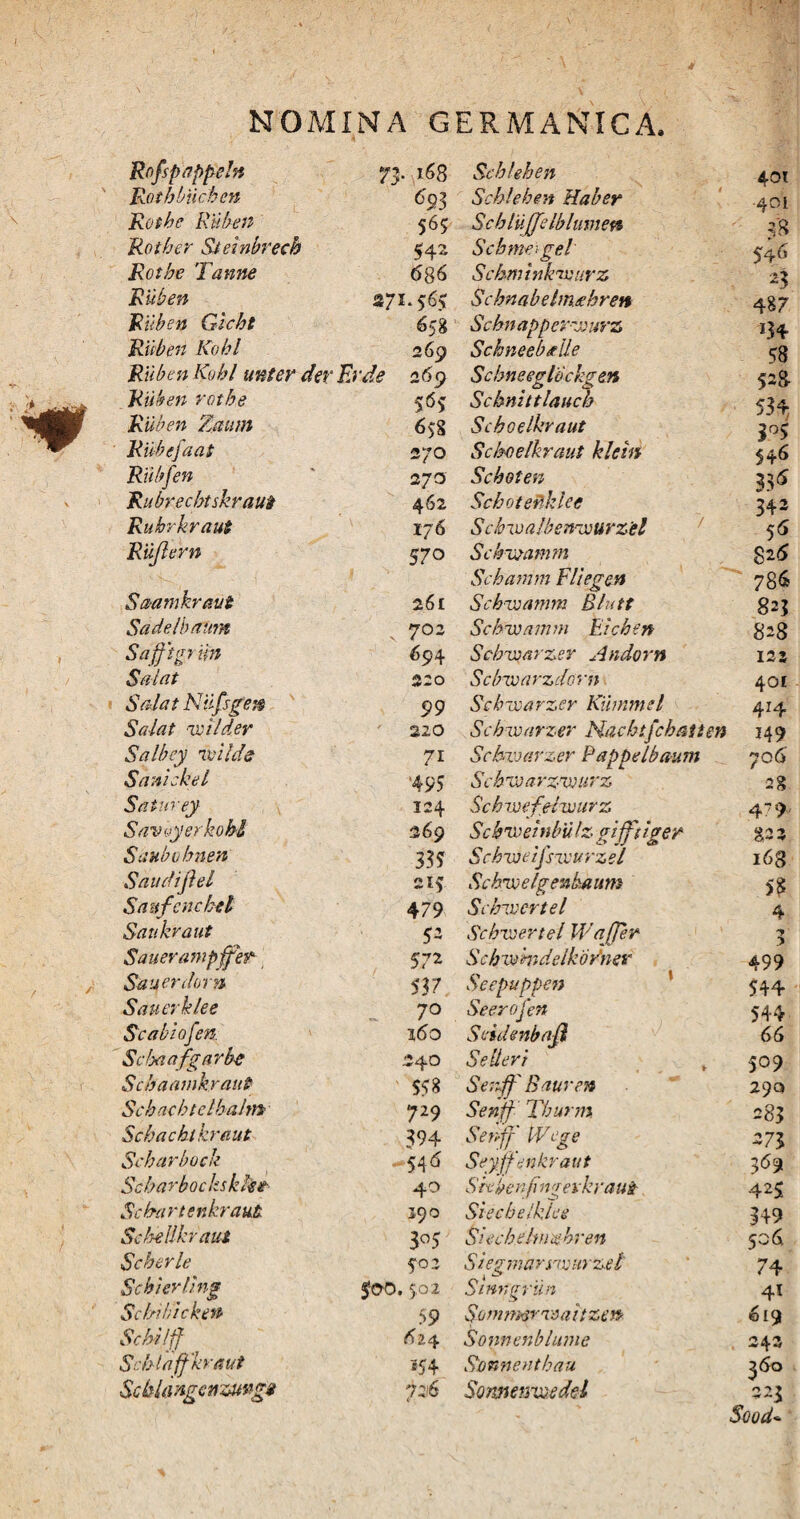 NOMINA GERMANICA.
Roſspappeln 73. 168
Rothbüchen 693
Rothe Rüben 565
Rother Steinbrech 542
Rothe Tanne 686
Rüben 271. 565
Rüben Gicht 658
Rüben Kohl 269
Rüben Kohl unter der Erde 269
Rüben rothe 565
Rüben Zaum 658
Rübeſaat 270
Rübſen 270
Rubrechtskraut 462
Ruhrkraut 176
Rüſtern 570
Saamkraut 261
Sadelbaum 702
Safftgrün 694
Salat 220
Salat Nüſsgen 99
Salat wilder 220
Salbey wilde 71
Sanickel 495
Saturey 124
Savoyerkohl 269
Saubohnen 335
Saudiſtel 215
Saufenchel 479
Saukraut 52
Sauerampffer 572
Sauerdorn 537
Sauerklee 70
Scabioſen 160
Schaafgarbe 240
Schaamkraut 558
Schachtelhalm 729
Schachtkraut 394
Scharbock 546
Scharbocksklee 40
Schartenkraut 190
Schellkraut 305
Scherle 502
Schierling 500. 502
Schibicken 59
Schilff 624
Schlaffkraut 154
Schlangenzunge 726
Schlehen 401
Schlehen Haber 401
Schlüſſelblumen 38
Schmergel 546
Schminkwurz 23
Schnabelmæhren 487
Schnapperwurz 134
Schneebælle 58
Schneeglöckgen 528
Schnittlauch 534
Schoelkraut 305
Schoelkraut klein 546
Schoten 336
Schotenklee 342
Schwalbenwurzel 56
Schwamm 826
Schamm Fliegen 786
Schwamm Blutt 823
Schwamm Eichen 828
Schwarzer Andorn 122
Schwarzdorn 401
Schwarzer Kümmel 414
Schwarzer Nachtſchatten 149
Schwarzer Pappelbaum 706
Schwarzwurz 28
Schwefelwurz 479
Schweinbülz gifftiger 822
Schweiſswurzel 168
Schwelgenbaum 58
Schwertel 4
Schwertel Waſſer 3
Schwindelkörner 499
Seepuppen 544
Seeroſen 544
Seidenbaſt 66
Selleri 509
Senff Bauren 290
Senff Thurm 283
Senff Wege 273
Seyffenkraut 369
Siebenfingerkraut 425
Siechelklee 349
Siechelmæhren 506
Siegmarswurzel 74
Sinngrün 41
Sommerwaitzen 619
Sonnenblume 242
Sonnenthau 360
Sonnenwedel 223
Sood-